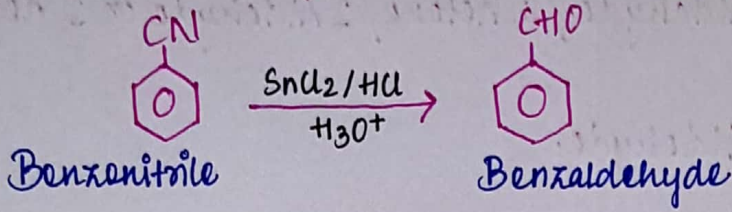 CN
CHO
SnCl2/HCl
H3O+
Benzonitrile
Benzaldehyde